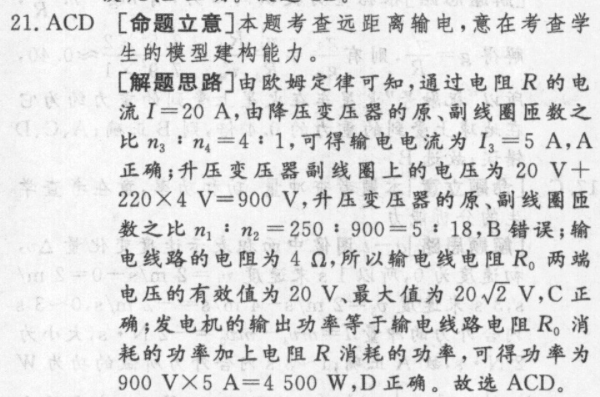 21. ACD [命题立意]本题考查远距离输电,意在考查学
生的模型建构能力。
[解题思路]由欧姆定律可知,通过电阻 R 的电
流 I=20 A,由降压变压器的原、副线圈匝数之
比 n₃∶n₄=4∶1,可得输电电流为 I₃=5 A,A
正确;升压变压器副线圈上的电压为 20 V+
220×4 V=900 V,升压变压器的原、副线圈匝
数之比 n₁∶n₂=250∶900=5∶18,B 错误;输
电线路的电阻为 4 Ω,所以输电线电阻 R₀ 两端
电压的有效值为 20 V,最大值为 20√2 V,C 正
确;发电机的输出功率等于输电线路电阻 R₀ 消
耗的功率加上电阻 R 消耗的功率,可得功率为
900 V×5 A=4 500 W,D 正确。故选 ACD。